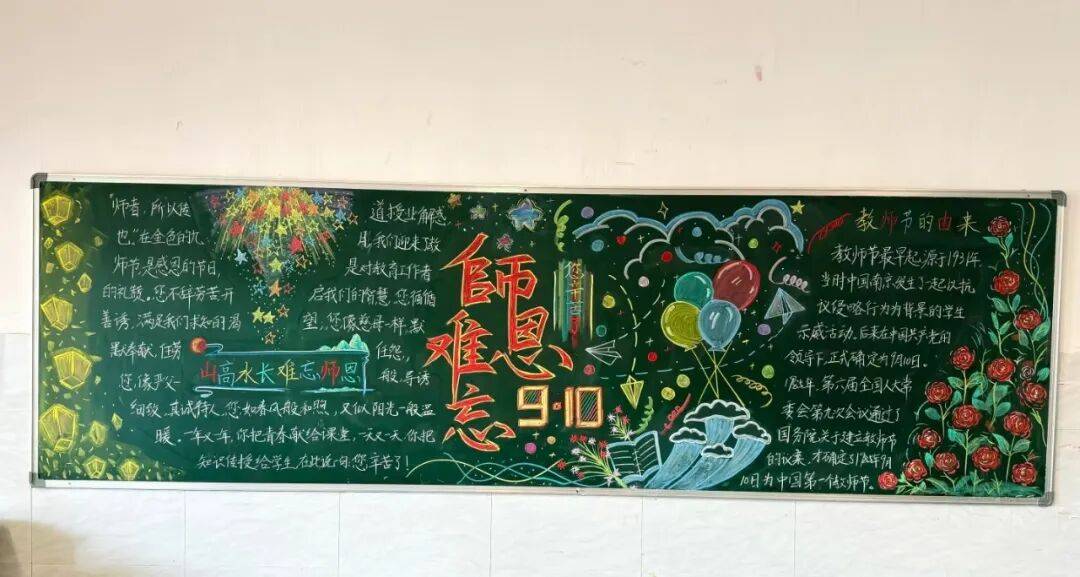 "师者,所以传
道授业解惑
也。"在金色的九
月,我们迎来了教
师节是感恩的节日,
是对教育工作者
的礼赞。您不辞劳苦开
启我们的智慧,您循循
善诱,满足我们求知的渴
望,您像慈母一样,默
默奉献,任劳
任怨,
您,像严父一
般,导诱
山高水长难忘师恩
细致,真诚待人,您,如春风般和煦,又似阳光一般温
暖。一年又一年,你把青春献给课堂,一天又一天,你把
知识传授给学生,在此说一句,您辛苦了!
師恩
难忘
9·10
您辛苦了
教师节的由来
教师节最早起源于1931年,
当时中国南京发生了一起以抗
议侵略行为为背景的学生
示威活动,后来在中国共产党的
领导下,正式确定为9月10日。
1985年,第六届全国人大常
委会第九次会议通过了
国务院关于建立教师节
的议案,才确定了1985年9月
10日为中国第一个教师节。